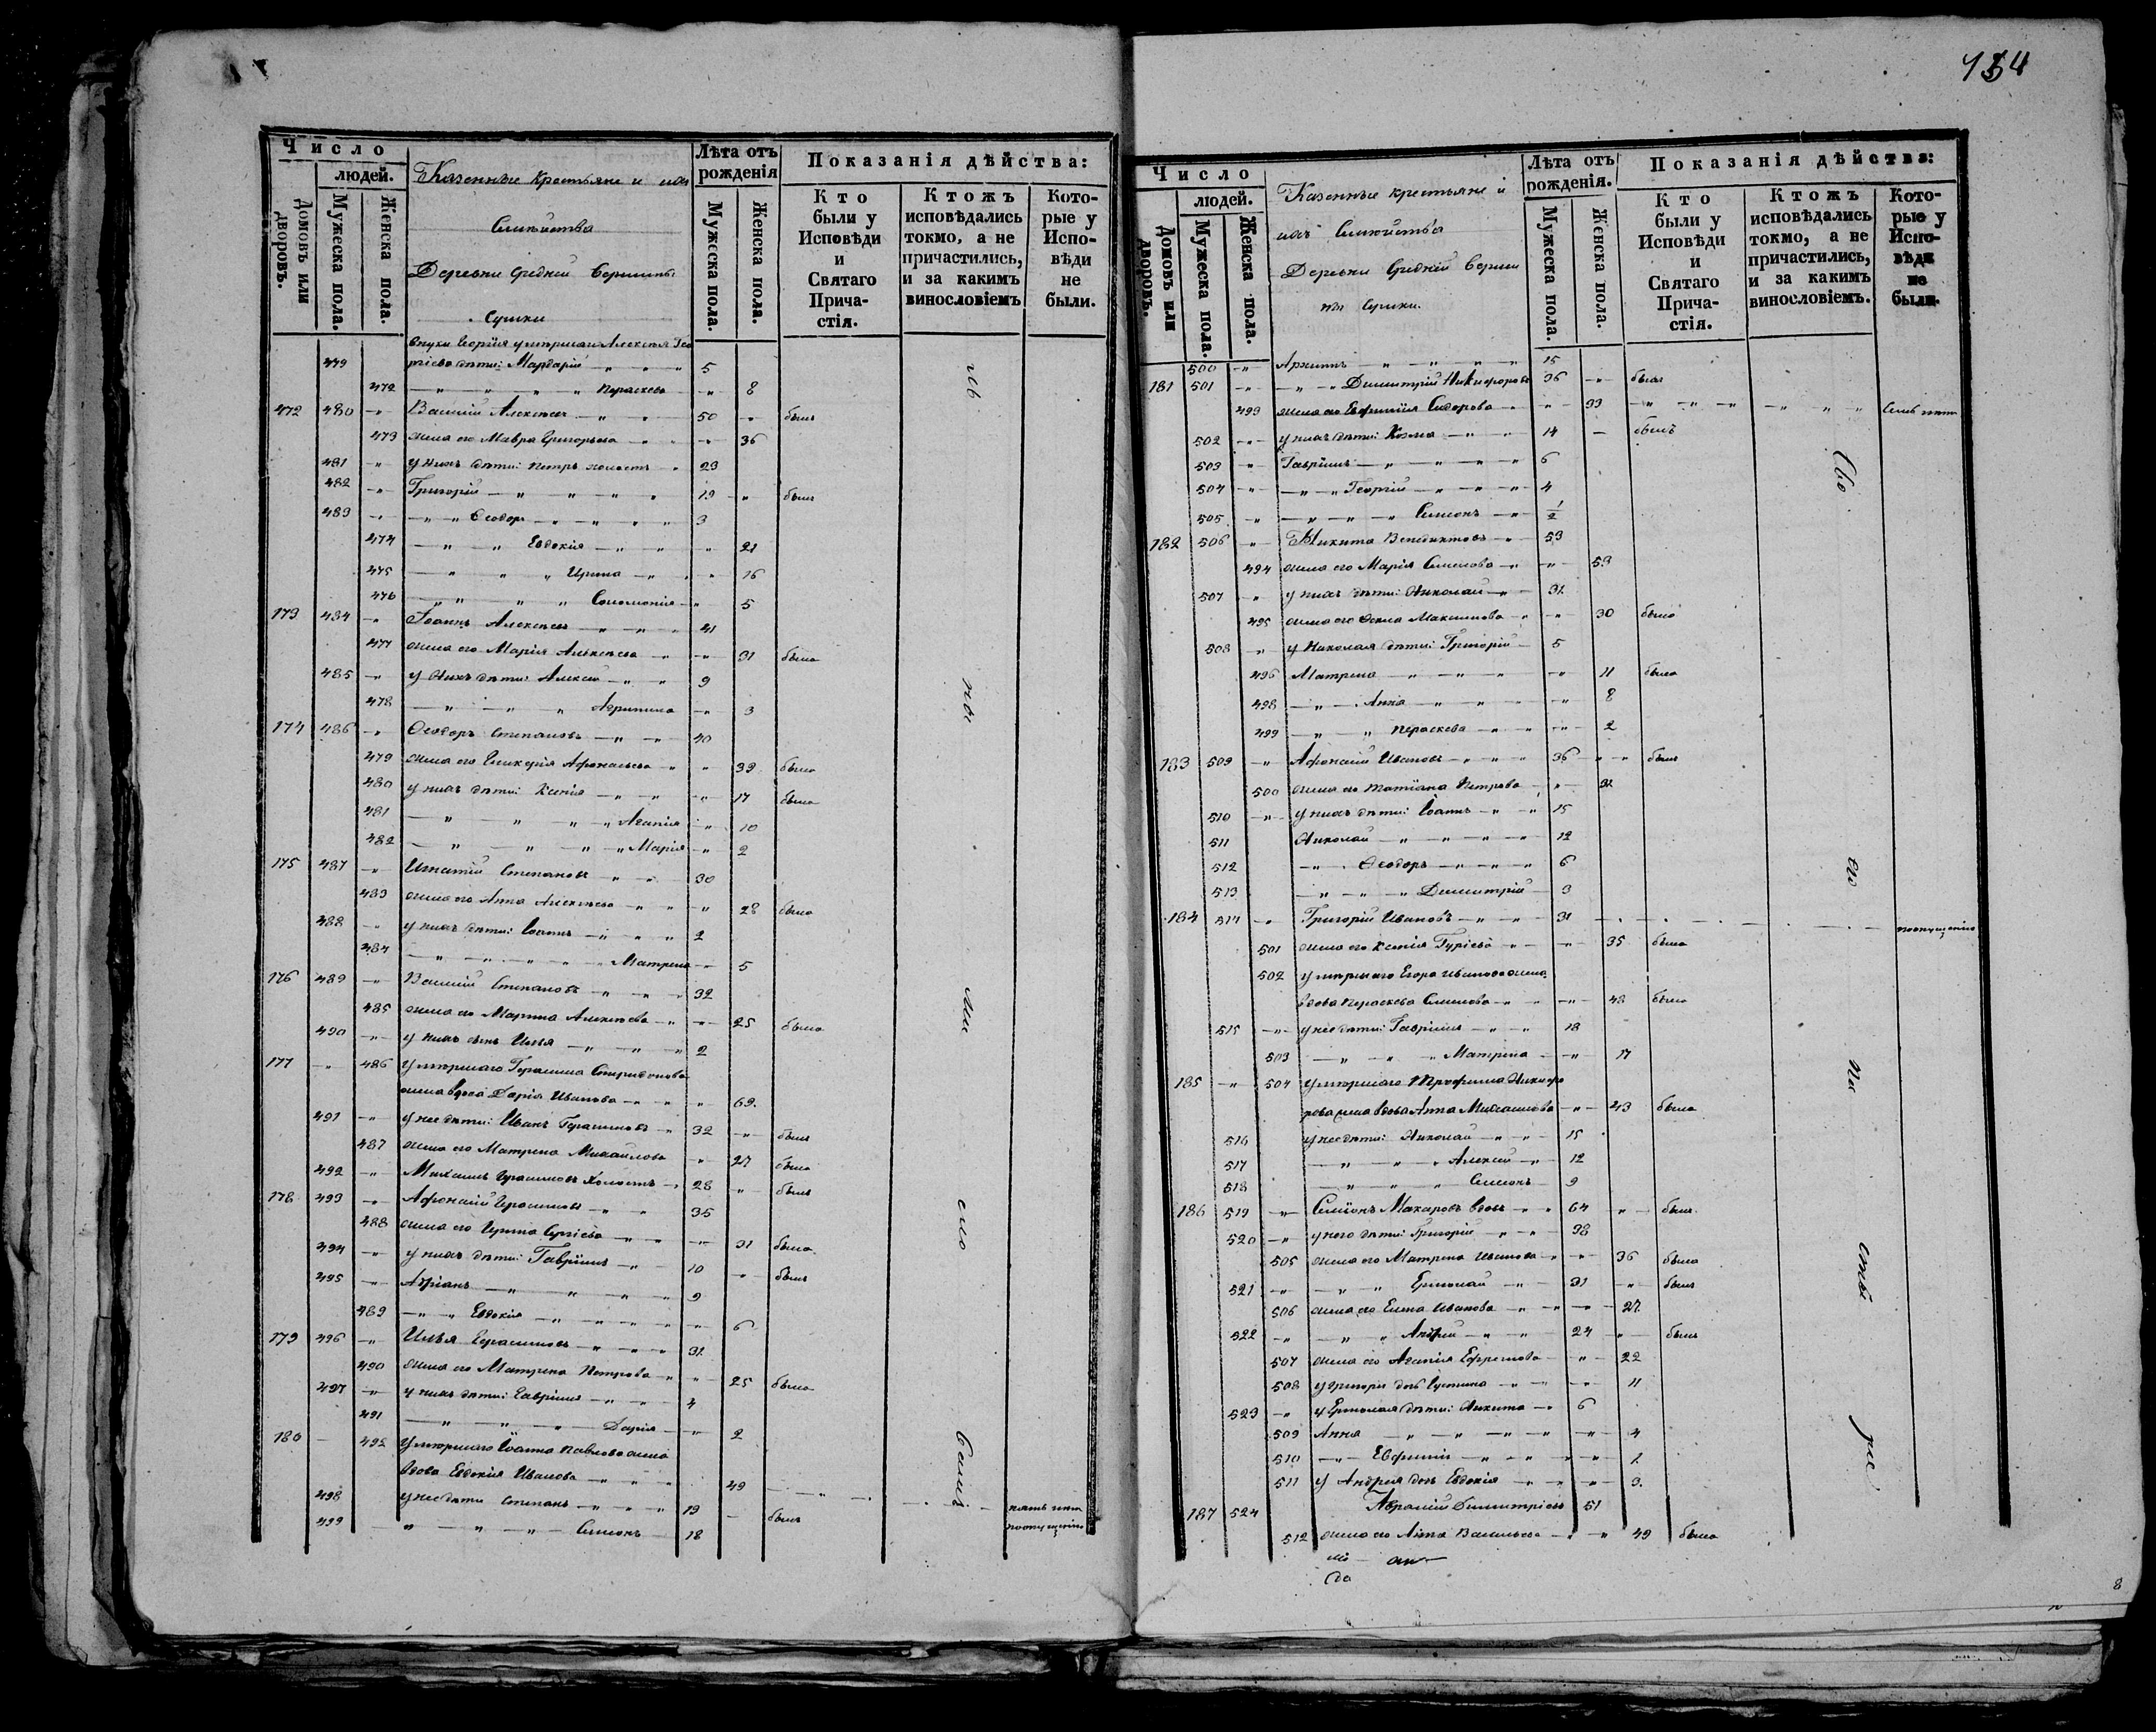 134
Число
людей.
Домовъ или дворовъ.
Мужеска пола.
Женска пола.
Казенные крестьяне и ихъ
Семейства
Деревни Средней Вершины
Сушки
Лѣта отъ рожденія
Мужеска пола.
Женска пола.
Показанія дѣйства:
Кто были у Исповѣди и Святаго Причастія.
Ктожъ исповѣдались токмо, а не причастились, и за какимъ винословіемъ
Которые у Исповѣди не были.
внуки Георгія умершаго Алексѣя Гео
479 ргіева дѣти: Мардарій 5
472 Параскева 8
172 480 Василій Алексѣевъ 50 былъ
473 жена его Мавра Григорьева 36
481 у нихъ дѣти: Петръ холостъ 23
482 Григорій 19 былъ
483 Ѳеодоръ 3
474 Евдокія 21
475 Ирина 16
476 Соломонія 5
173 484 Іоаннъ Алексѣевъ 41
477 жена его Марія Алексѣева 31 была
485 у нихъ дѣти: Алексѣй 9
478 Агрипина 3
174 486 Ѳеодоръ Степановъ 40
479 жена его Гликерія Афонасьева 39 была
480 у нихъ дѣти: Ксенія 17 была
481 Агапія 10
482 Марія 2
175 487 Игнатій Степановъ 30
483 жена его Анна Алексѣева 28 была
488 у нихъ дѣти: Іоаннъ 2
484 Матрена 5
176 489 Василій Степановъ 32
485 жена его Марина Алексѣева 25 была
490 у нихъ сынъ Илья 2
177 486 умершаго Герасима Спиридонова
жена вдова Дарія Иванова 69
491 у нее дѣти: Иванъ Герасимовъ 32 былъ
487 жена его Матрена Михайлова 27 была
492 Михаилъ Герасимовъ холостъ 28 былъ
178 493 Афонасій Герасимовъ 35
488 жена его Ирина Сергіева 31 была
494 у нихъ дѣти: Гавріилъ 10 былъ
495 Адріанъ 9
489 Евдокія 6
179 496 Илья Герасимовъ 31
490 жена его Матрена Петрова 25 была
497 у нихъ дѣти: Гавріилъ 4
491 Дарія 2
180 492 умершаго Іоанна Павлова жена
вдова Евдокія Иванова 49
498 у нее дѣти Степанъ 19 былъ
499 Симеонъ 18 поопущенію
Число
людей.
Домовъ или дворовъ.
Мужеска пола.
Женска пола.
Казенные крестьяне и
ихъ Семейства
Деревни Средней Верши
ны Сушки.
Лѣта отъ рожденія.
Мужеска пола.
Женска пола.
Показанія дѣйства:
Кто были у Исповѣди и Святаго Причастія.
Ктожъ исповѣдались токмо, а не причастились, и за какимъ винословіемъ.
Которые у Исповѣди не были.
500 Архипъ 15
181 501 Димитрій Никифоровъ 36 былъ
493 жена его Евфимія Сидорова 33
502 у нихъ дѣти: Козма 14 былъ
503 Гавріилъ 6
504 Георгій 4
505 Симеонъ 1/2
182 506 Никита Венедиктовъ 53
494 жена его Марія Семенова 53
507 у нихъ дѣти: Николай 31
495 жена его Ѳекла Максимова 30 была
508 у Николая дѣти: Григорій 5
496 Матрена 11 была
498 Анна 8
499 Параскева 2
183 509 Афонасій Ивановъ 36 былъ
500 жена его Татіана Петрова 31
510 у нихъ дѣти: Іоаннъ 15
511 Николай 12
512 Ѳеодоръ 6
513 Димитрій 3
184 514 Григорій Ивановъ 31 поопущенію
501 жена его Ксенія Гуріева 35 была
502 умершаго Егора Иванова жена
вдова Параскева Семенова 48 была
515 у нее дѣти: Гавріилъ 18
503 Матрена 17
185 504 умершаго Трофима Никифо
рова жена вдова Анна Михайлова 43 была
516 у нее дѣти: Николай 15
517 Алексѣй 12
518 Симеонъ 9
186 519 Симеонъ Макаровъ вдовъ 64 былъ
520 у него дѣти: Григорій 38
505 жена его Матрена Иванова 36 была
521 Ермолай 31 былъ
506 жена его Елена Иванова 27
522 Андрей 24 былъ
507 жена его Агапія Ефремова 22
508 у Григорія дочь Іустина 11
523 у Ермолая дѣти: Никита 6
509 Анна 4
510 Евфимія 1
511 у Андрея дочь Евдокія 3
187 524 Аврамій Димитріевъ 51
512 жена его Анна Васильева 49 была